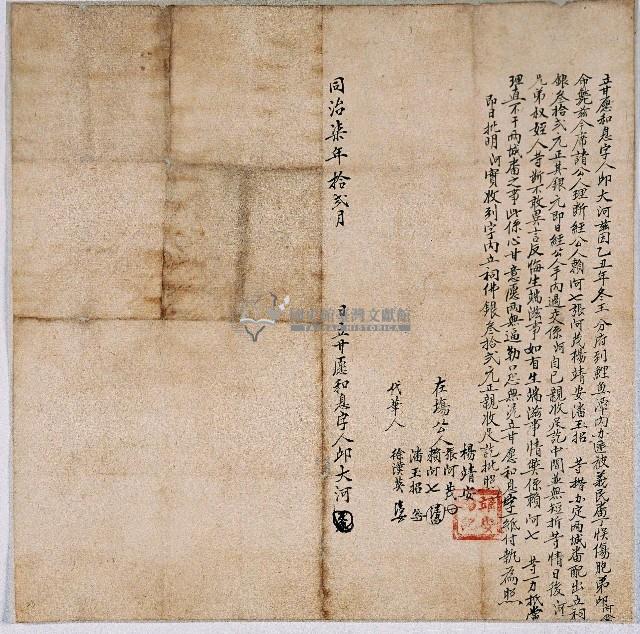 立甘愿和息字人邱大河茲因乙丑年叁王分府到鯉魚潭內力匪被義民庄丁悮傷胞弟邱
命斃茲今席請公人理斷經公人賴阿七張阿茂楊靖安潘玉招等措办定兩城番配出立祠
銀叁拾弍元正其銀元即日經公人手內過交係河自已親收足訖中間並無短折等情日後河
兄弟叔姪人等断不敢異言反悔生端滋事如有生端滋事情獘係賴阿七等一力抵當
理直不干兩城番之事此係心甘意愿兩無逼勒口恐無凴立甘愿和息字一紙付執為照
即日批明河實收到字內立祠佛銀叁拾弍元正親收足訖批照
楊靖安
在塲公人張阿茂
賴阿七
潘玉招
代筆人徐漢英
同治柒年拾弍月 日立甘愿和息字人邱大河
國史館臺灣文獻館
TAIWAN HISTORICA